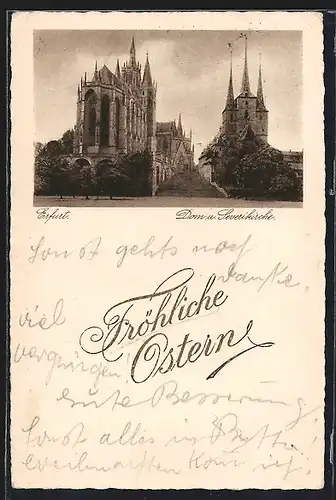 Erfurt. Dom u. Severikirche.
Sonst gehts noch
Danke.
Fröhliche
Ostern
viel
vergnügen!
Gute Besserung!
Sonst alles in Butter